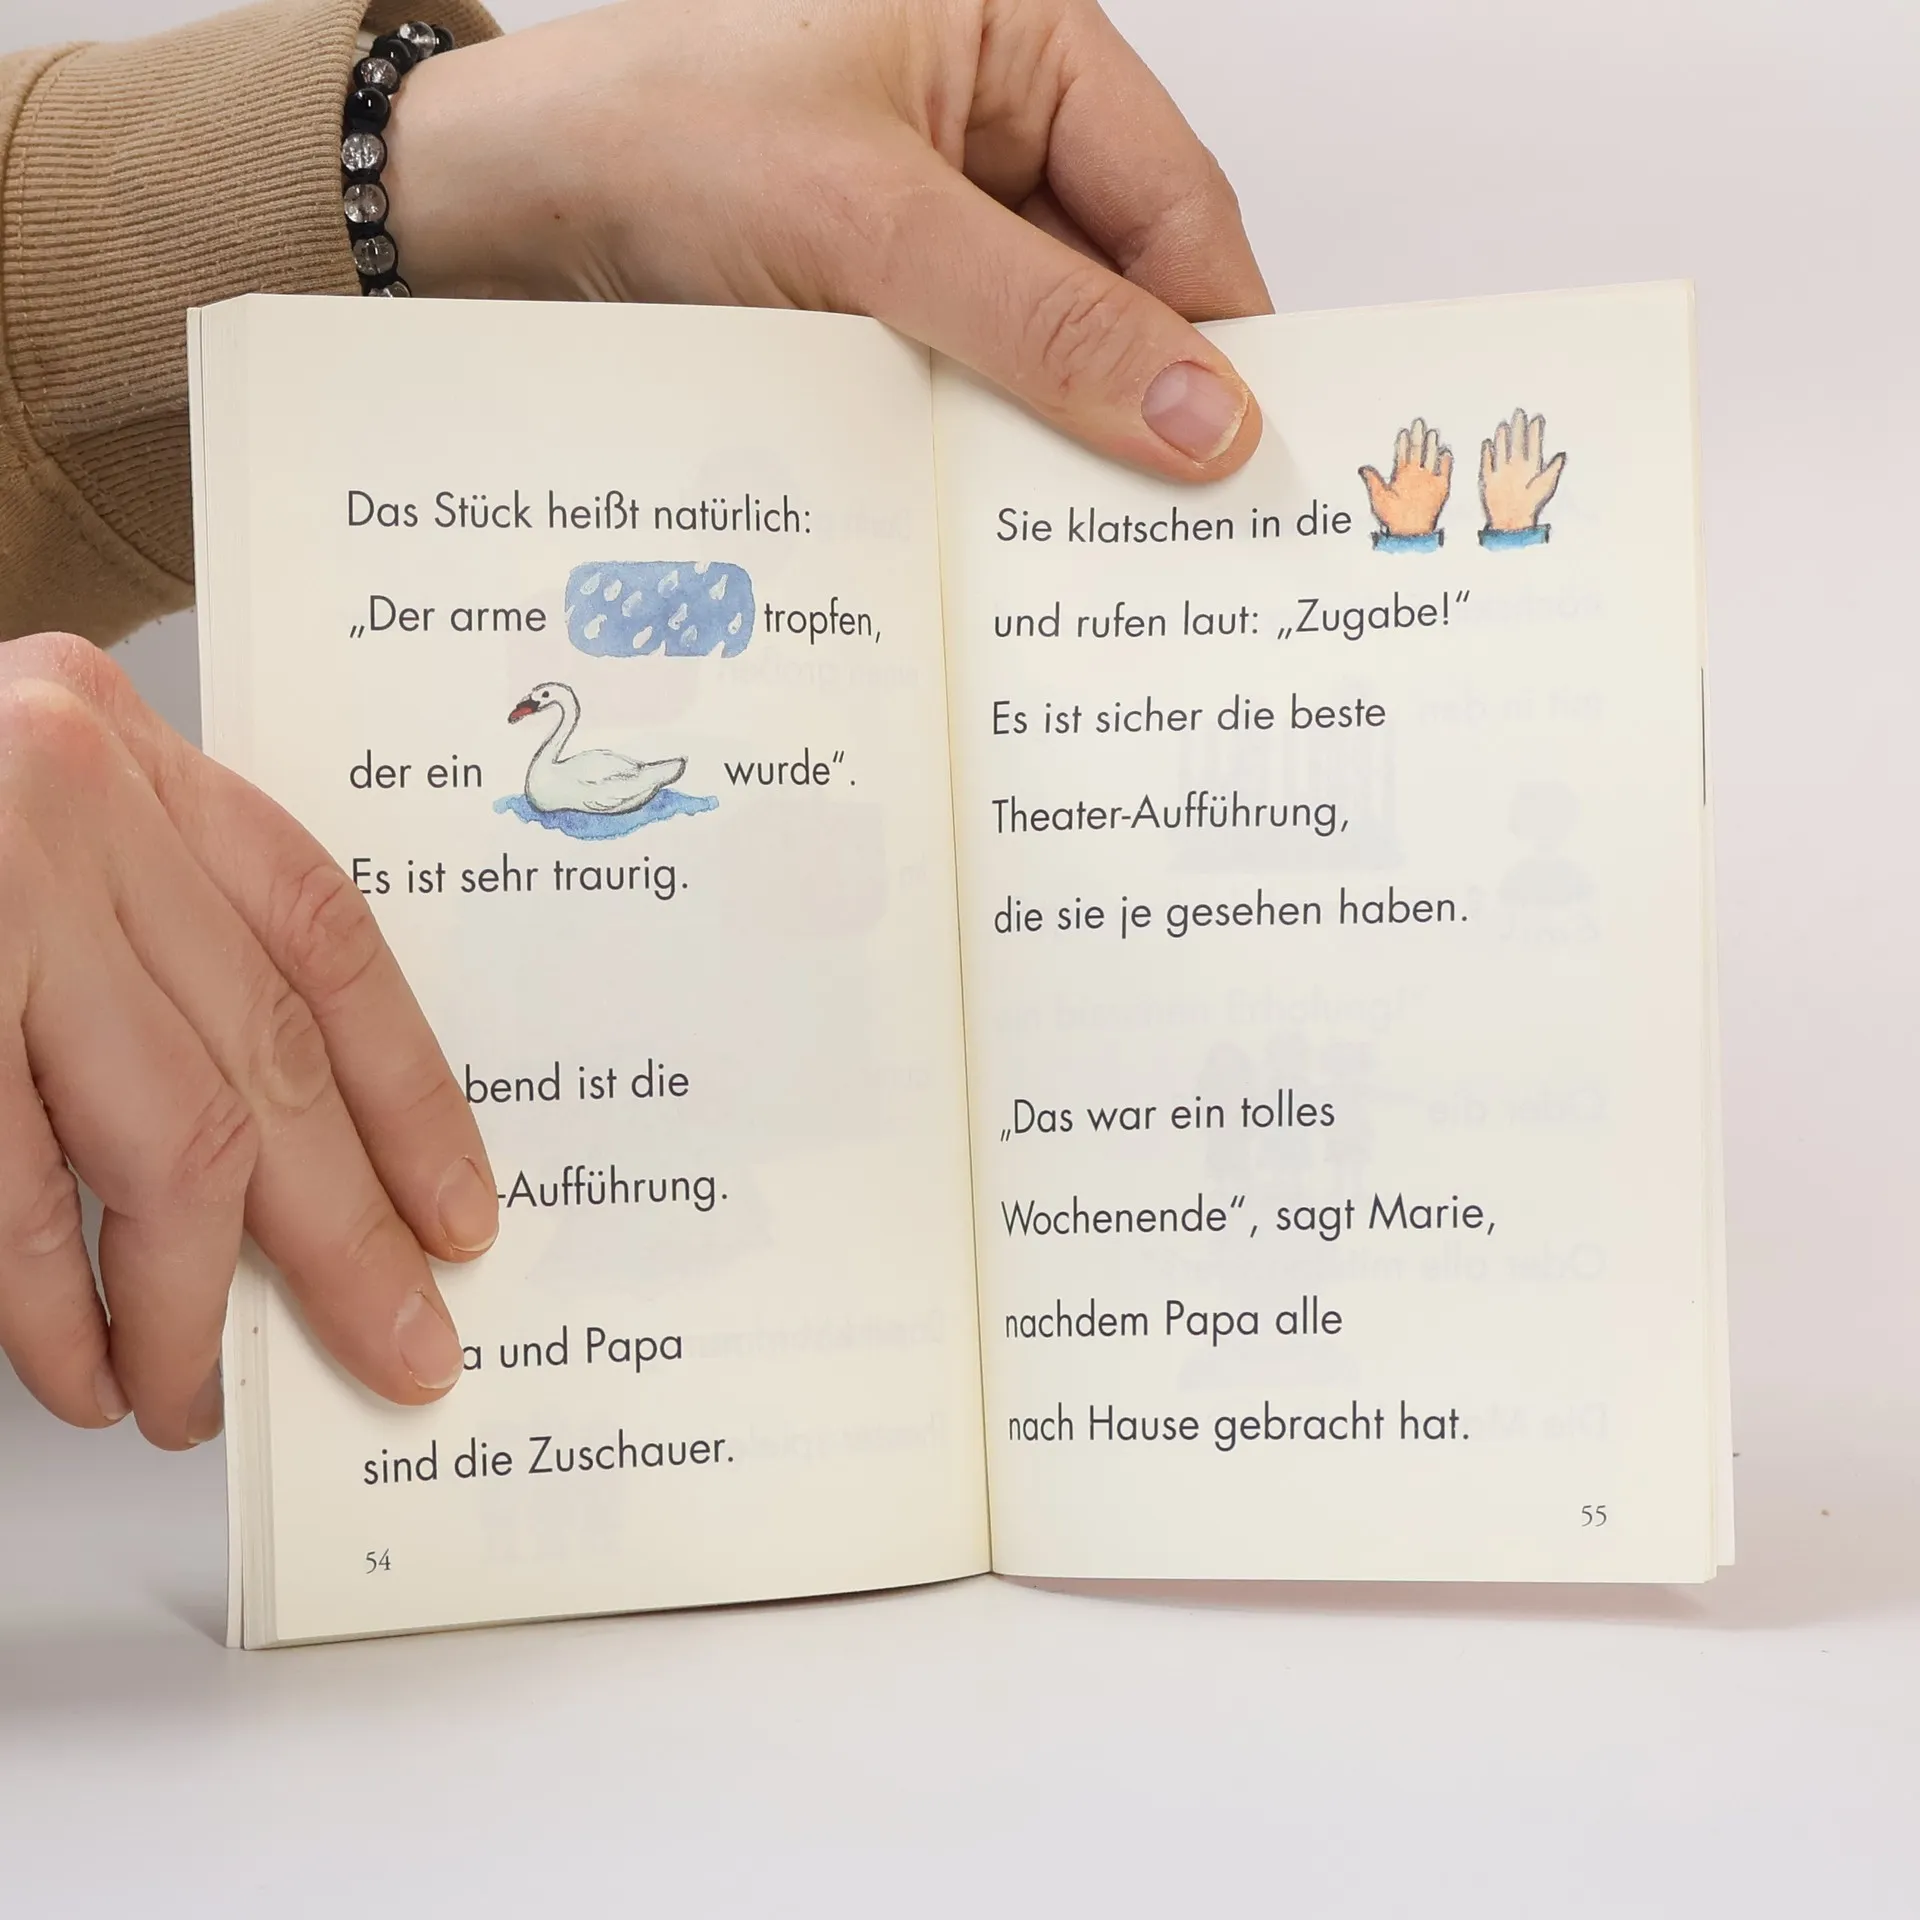 Das Stück heißt natürlich:
„Der arme tropfen,
der ein wurde“.
Es ist sehr traurig.
bend ist die
-Aufführung.
a und Papa
sind die Zuschauer.
54
Sie klatschen in die
und rufen laut: „Zugabe!“
Es ist sicher die beste
Theater-Aufführung,
die sie je gesehen haben.
„Das war ein tolles
Wochenende“, sagt Marie,
nachdem Papa alle
nach Hause gebracht hat.
55